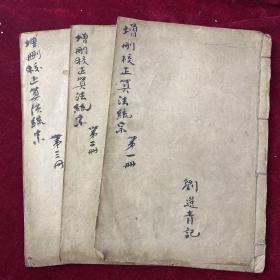 增刪校正算法統宗 第一冊
劉進青記
增刪校正算法統宗 第二冊
增刪校正算法統宗 第三冊